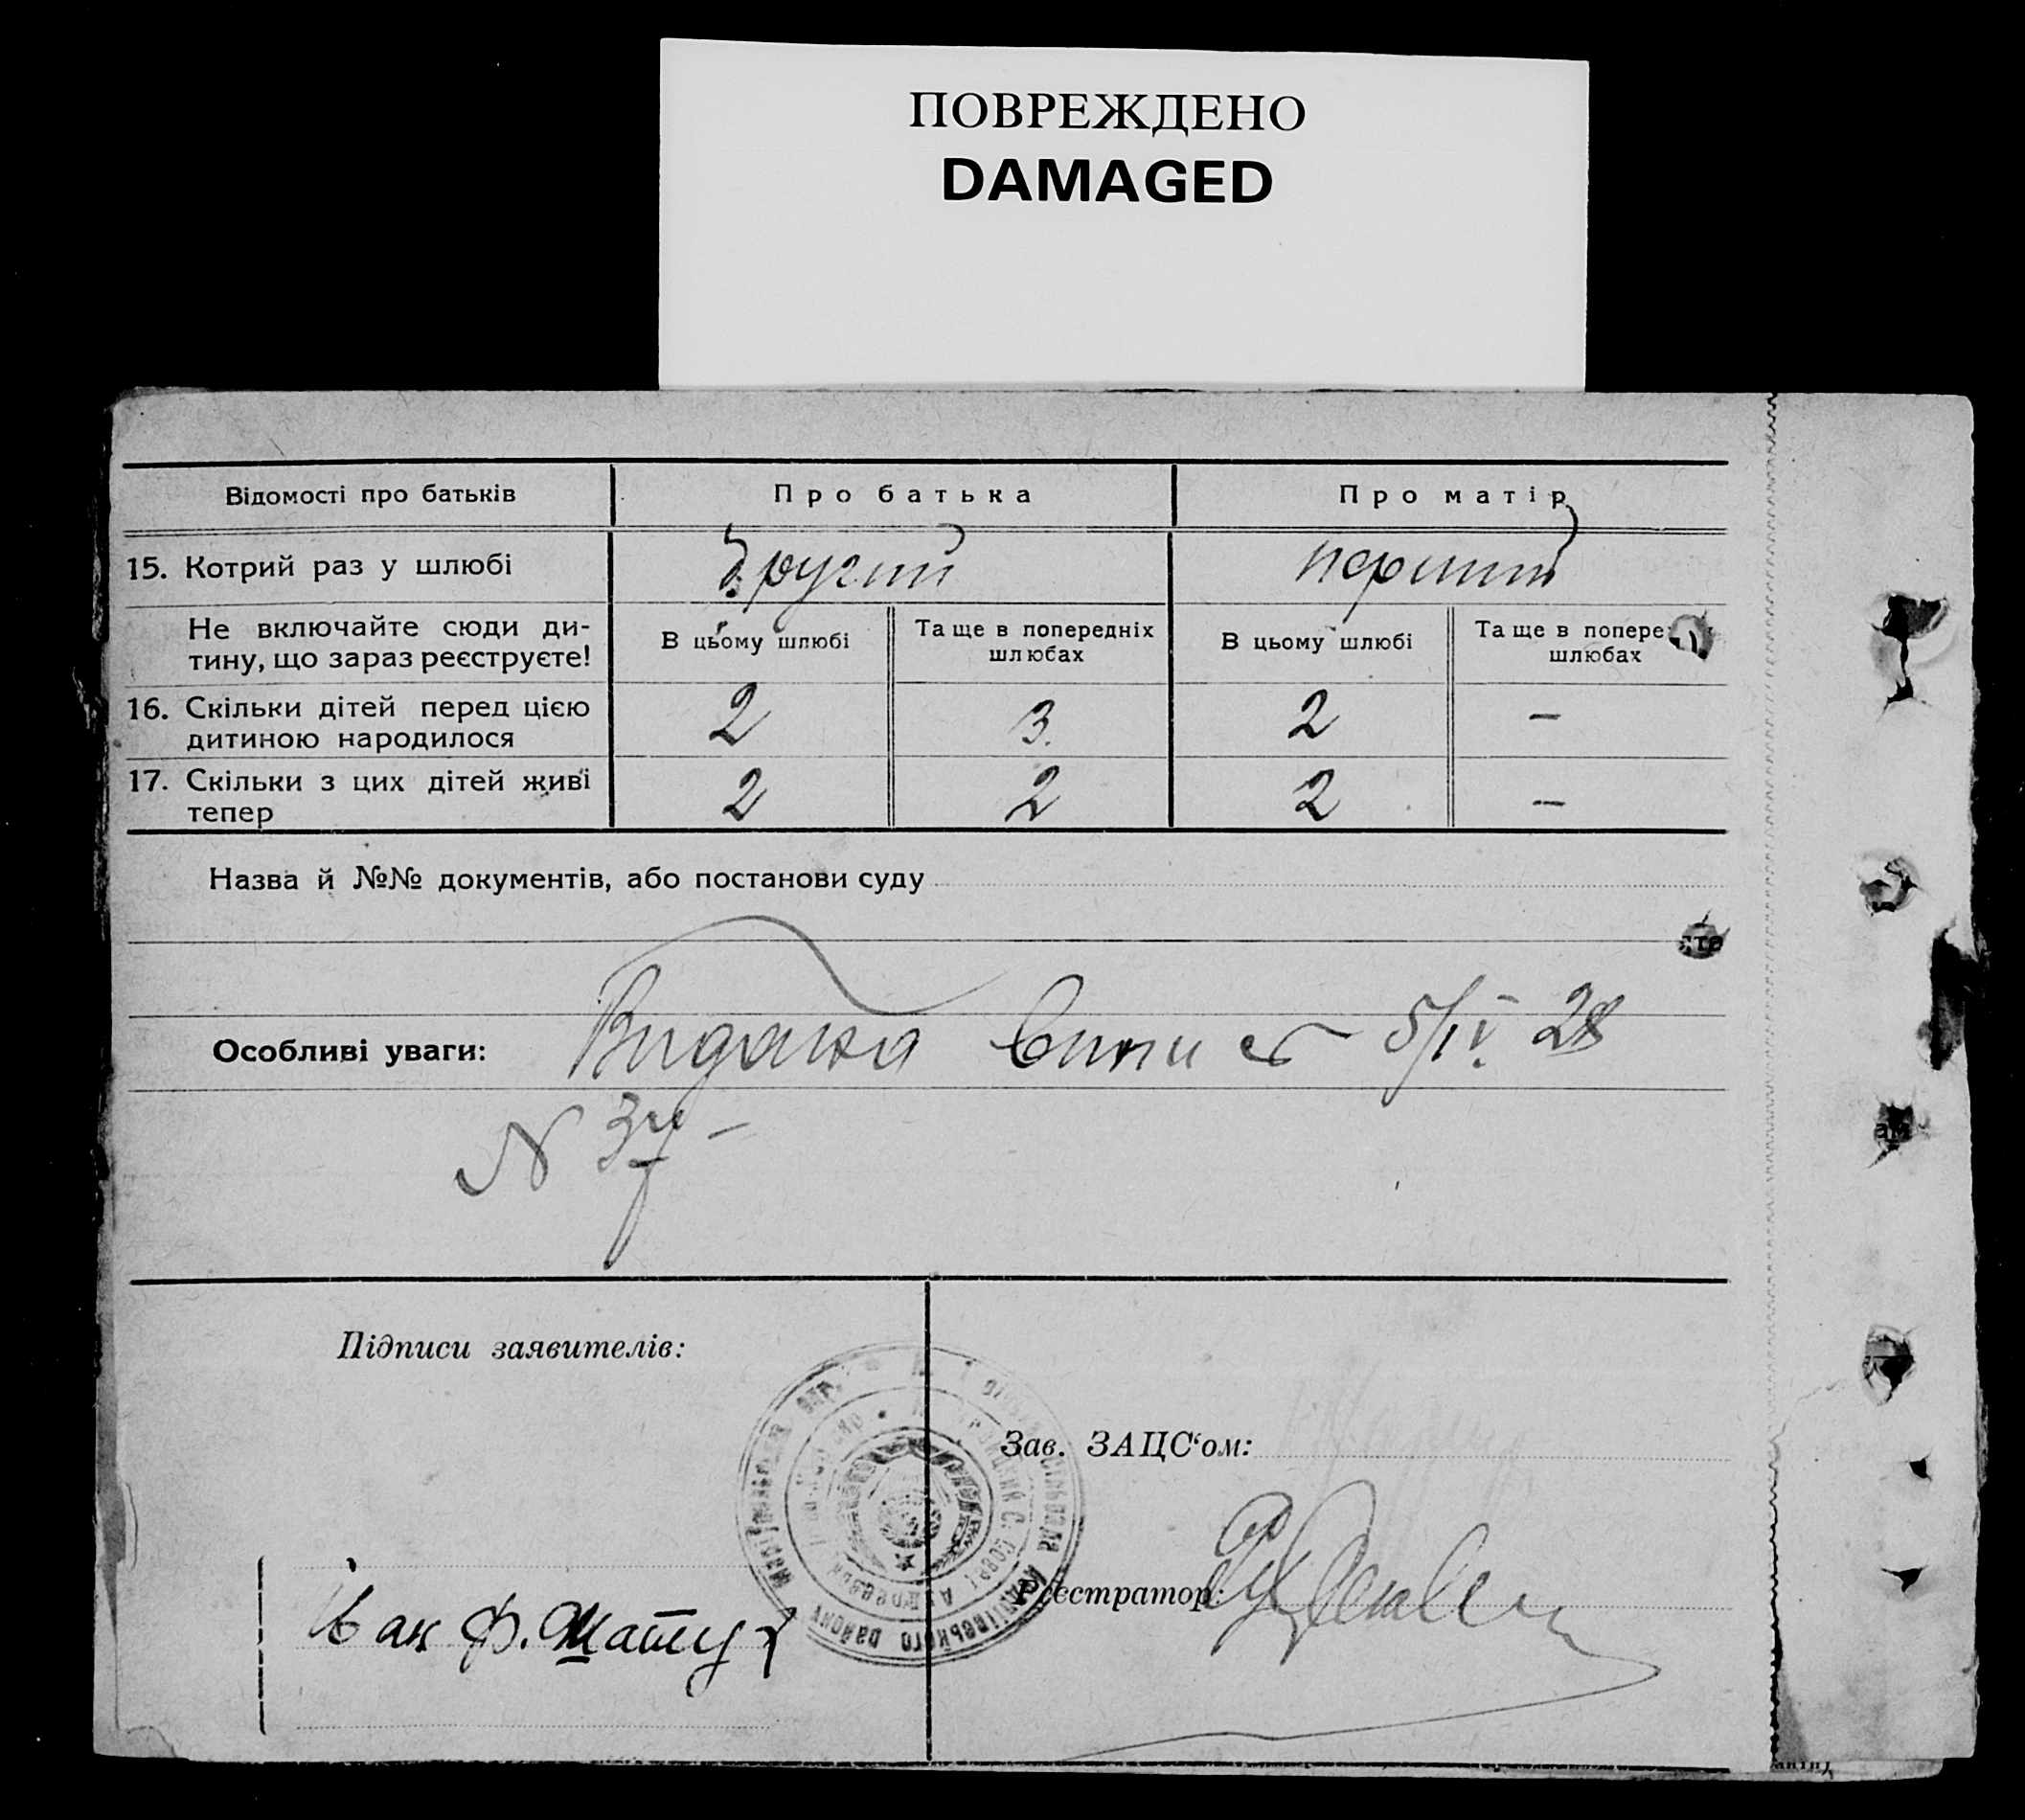 ПОВРЕЖДЕНО
DAMAGED
Відомості про батьків
Про батька
Про матір
15. Котрий раз у шлюбі
другий
перший
Не включайте сюди ди-
тину, що зараз реєструєте!
В цьому шлюбі
Та ще в попередніх
шлюбах
В цьому шлюбі
Та ще в попере
шлюбах
16. Скільки дітей перед цією
дитиною народилося
2
3.
2
—
17. Скільки з цих дітей живі
тепер
2
2
2
—
Назва й №№ документів, або постанови суду
Особливі уваги:
Видана 5/IV 28
N
Підписи заявителів:
Зав. ЗАЦС‘ом:
Реєстратор:
району